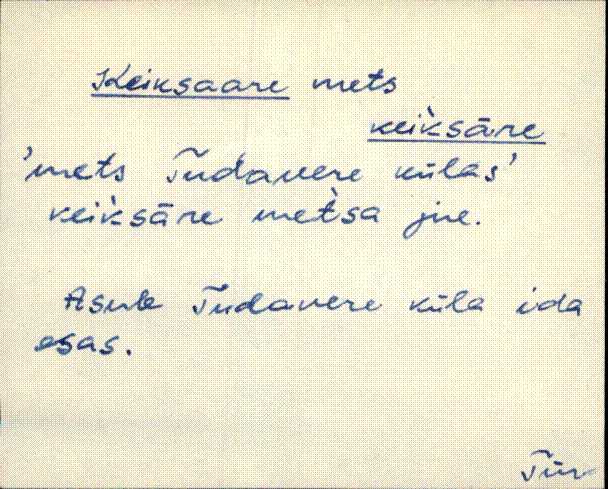 Keiksaare mets
kei̇̀ksāre
'mets Tudavere külas'
kei̇̀ksāre met̀sa jne.
Asub Tudavere küla ida
osas.
Tür